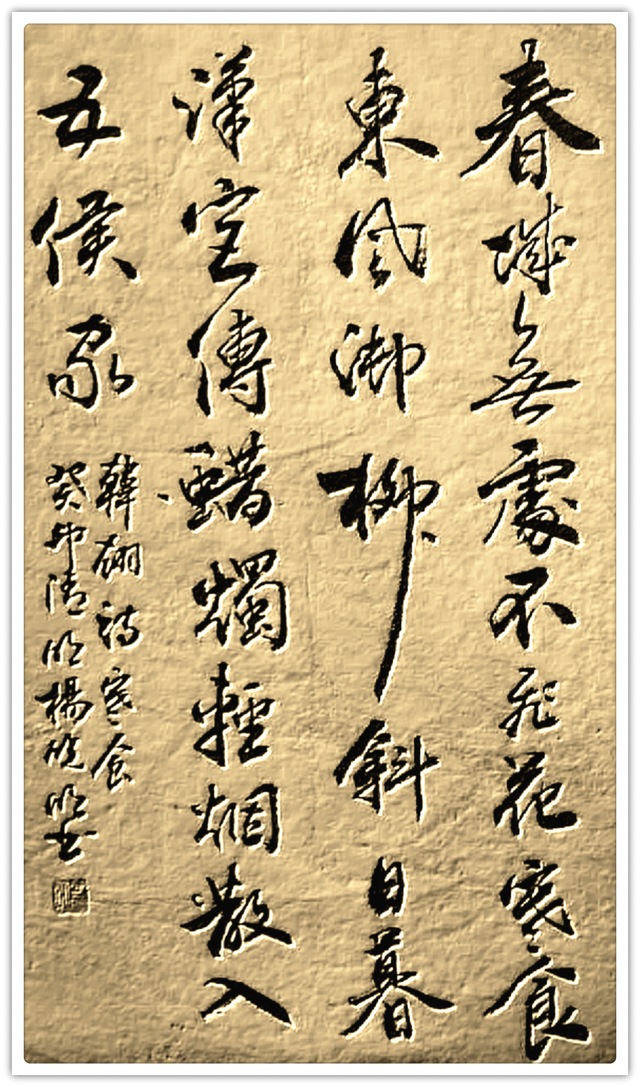 春城無處不飛花寒食
東風御柳斜日暮
漢宮傳蠟燭輕烟散入
五侯家
韓翃詩寒食
癸卯清明楊曉明書